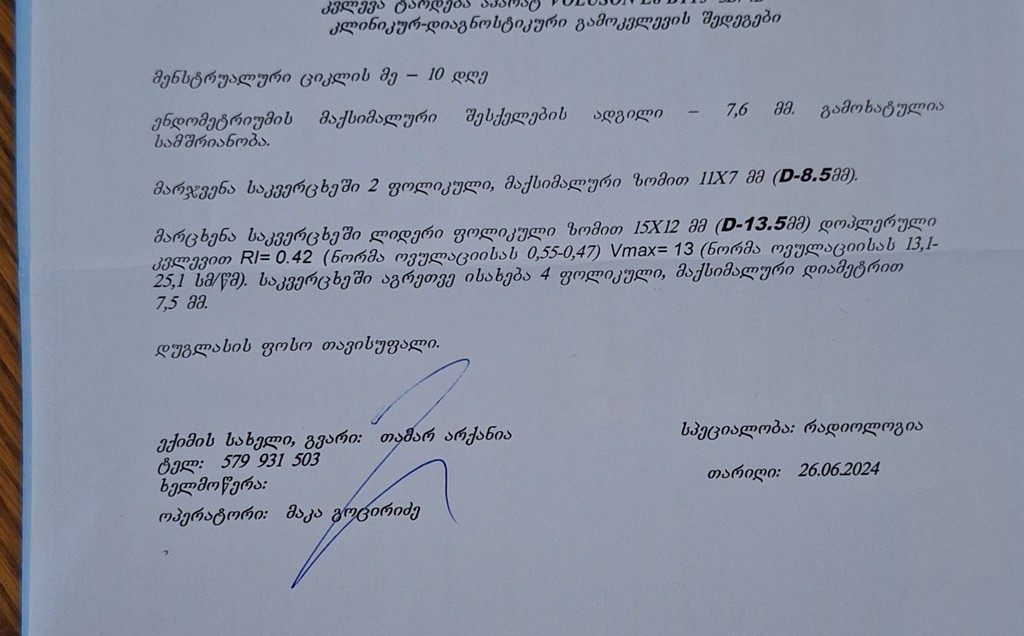 კვლევა ტარდება აპარატ VOLUSON E8
კლინიკურ-დიაგნოსტიკური გამოკვლევის შედეგები
მენსტრუალური ციკლის მე – 10 დღე
ენდომეტრიუმის მაქსიმალური შესქელების ადგილი – 7,6 მმ. გამოხატულია
სამშრიანობა.
მარჯვენა საკვერცხეში 2 ფოლიკული, მაქსიმალური ზომით 11X7 მმ (D-8.5მმ).
მარცხენა საკვერცხეში ლიდერი ფოლიკული ზომით 15X12 მმ (D-13.5მმ) დოპლერული
კვლევით RI= 0.42 (ნორმა ოვულაციისას 0,55-0,47) Vmax= 13 (ნორმა ოვულაციისას 13,1-
25,1 სმ/წმ). საკვერცხეში აგრეთვე ისახება 4 ფოლიკული, მაქსიმალური დიამეტრით
7,5 მმ.
დუგლასის ფოსო თავისუფალი.
ექიმის სახელი, გვარი: თამარ არქანია
ტელ: 579 931 503
ხელმოწერა:
ოპერატორი: მაკა გოცირიძე
სპეციალობა: რადიოლოგია
თარიღი: 26.06.2024